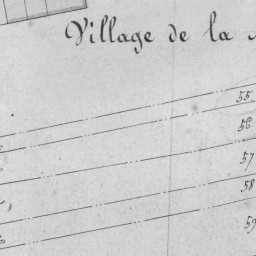 Village de la
55.
56
57
58
59